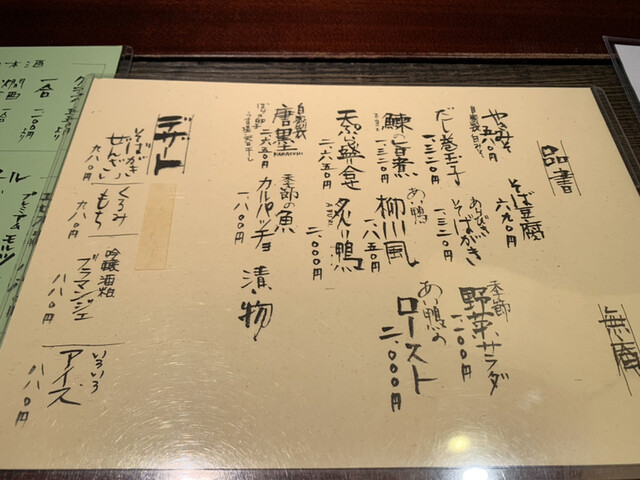 品書
無庵
やきみそ
自家製 甘みそ
五八〇円
そば豆腐
六九〇円
だし巻玉子
一、三二〇円
あらびき
そばがき
一、三二〇円
季節
野菜サラダ
二、二〇〇円
鰊の旨煮
一、三二〇円
あい鴨
柳川風
一、八五〇円
あい鴨の
ロースト
二、〇〇〇円
天ぷら盛合せ
二、六五〇円
炙り鴨
二、〇〇〇円
自家製
唐墨
KARASUMI
ぼらの卵子
うす塩 天日干し
二、六五〇円
季節の魚
カルパッチョ
一、八〇〇円
漬物
デザート
そばがき
ぜんざい
九八〇円
くるみ
もち
九八〇円
吟醸酒粕
ブラマンジェ
八八〇円
いろいろ
アイス
八八〇円
本酒
一合